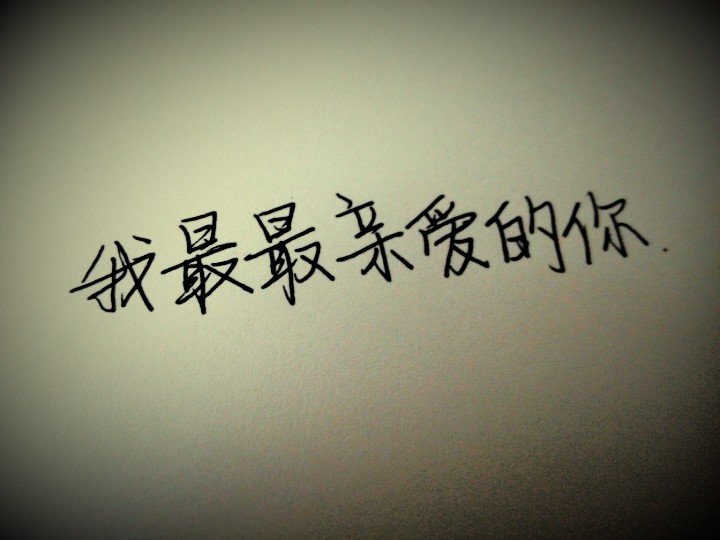 我最最亲爱的你.